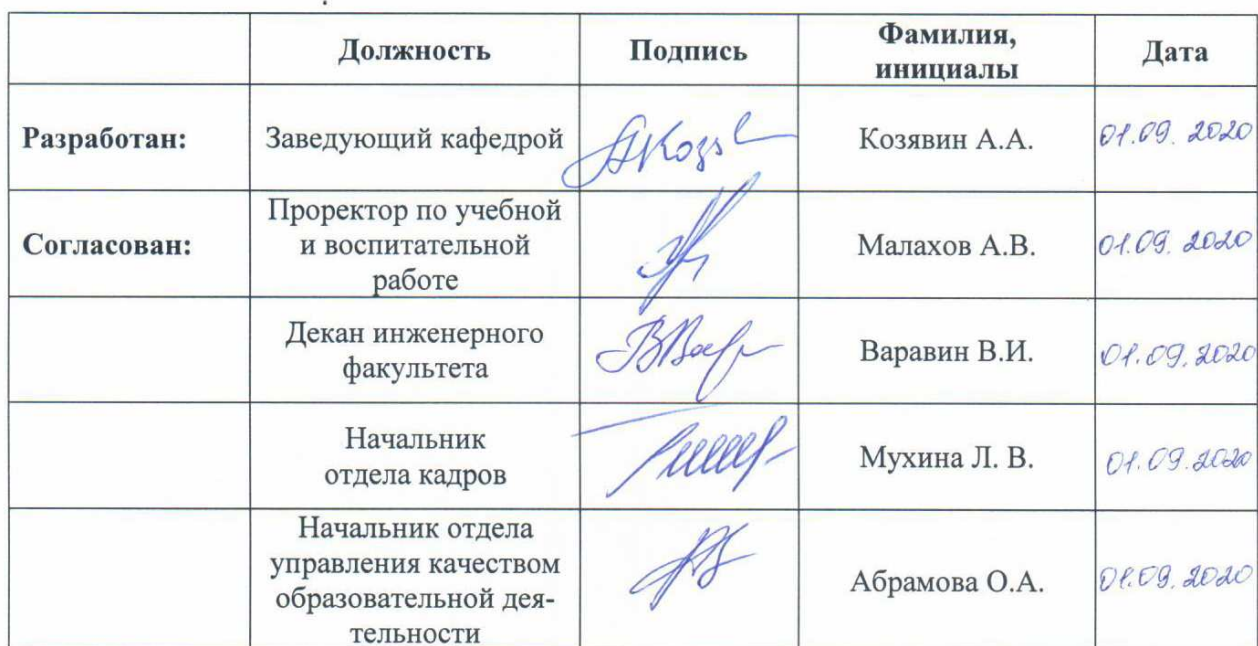 Должность Подпись Фамилия, Дата
инициалы
Разработан: Заведующий кафедрой Козявин А.А. 01.09.2020
Проректор по учебной
Согласован: и воспитательной Малахов А.В. 01.09.2020
работе
Декан инженерного
факультета Варавин В.И. 01.09.2020
Начальник
отдела кадров Мухина Л. В. 01.09.2020
Начальник отдела
управления качеством
образовательной дея- Абрамова О.А. 01.09.2020
тельности